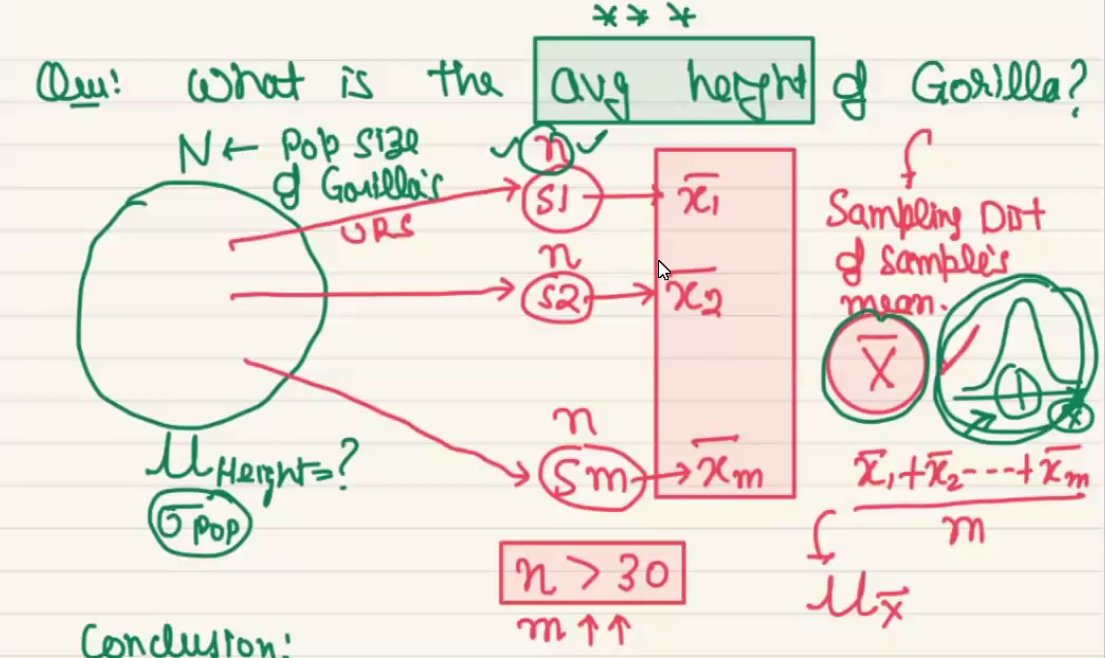 ***
Qus: What is the avg height of Gorilla?
N ← Pop size
of Gorilla's
SRS
n
S1 → x̄1
n
S2 → x̄2
n
Sm → x̄m
μHeight = ?
σpop
n > 30
m ↑↑
Sampling Dist
of sample's
mean.
X̄
x̄1 + x̄2 --- + x̄m
m
μx̄
Conclusion: